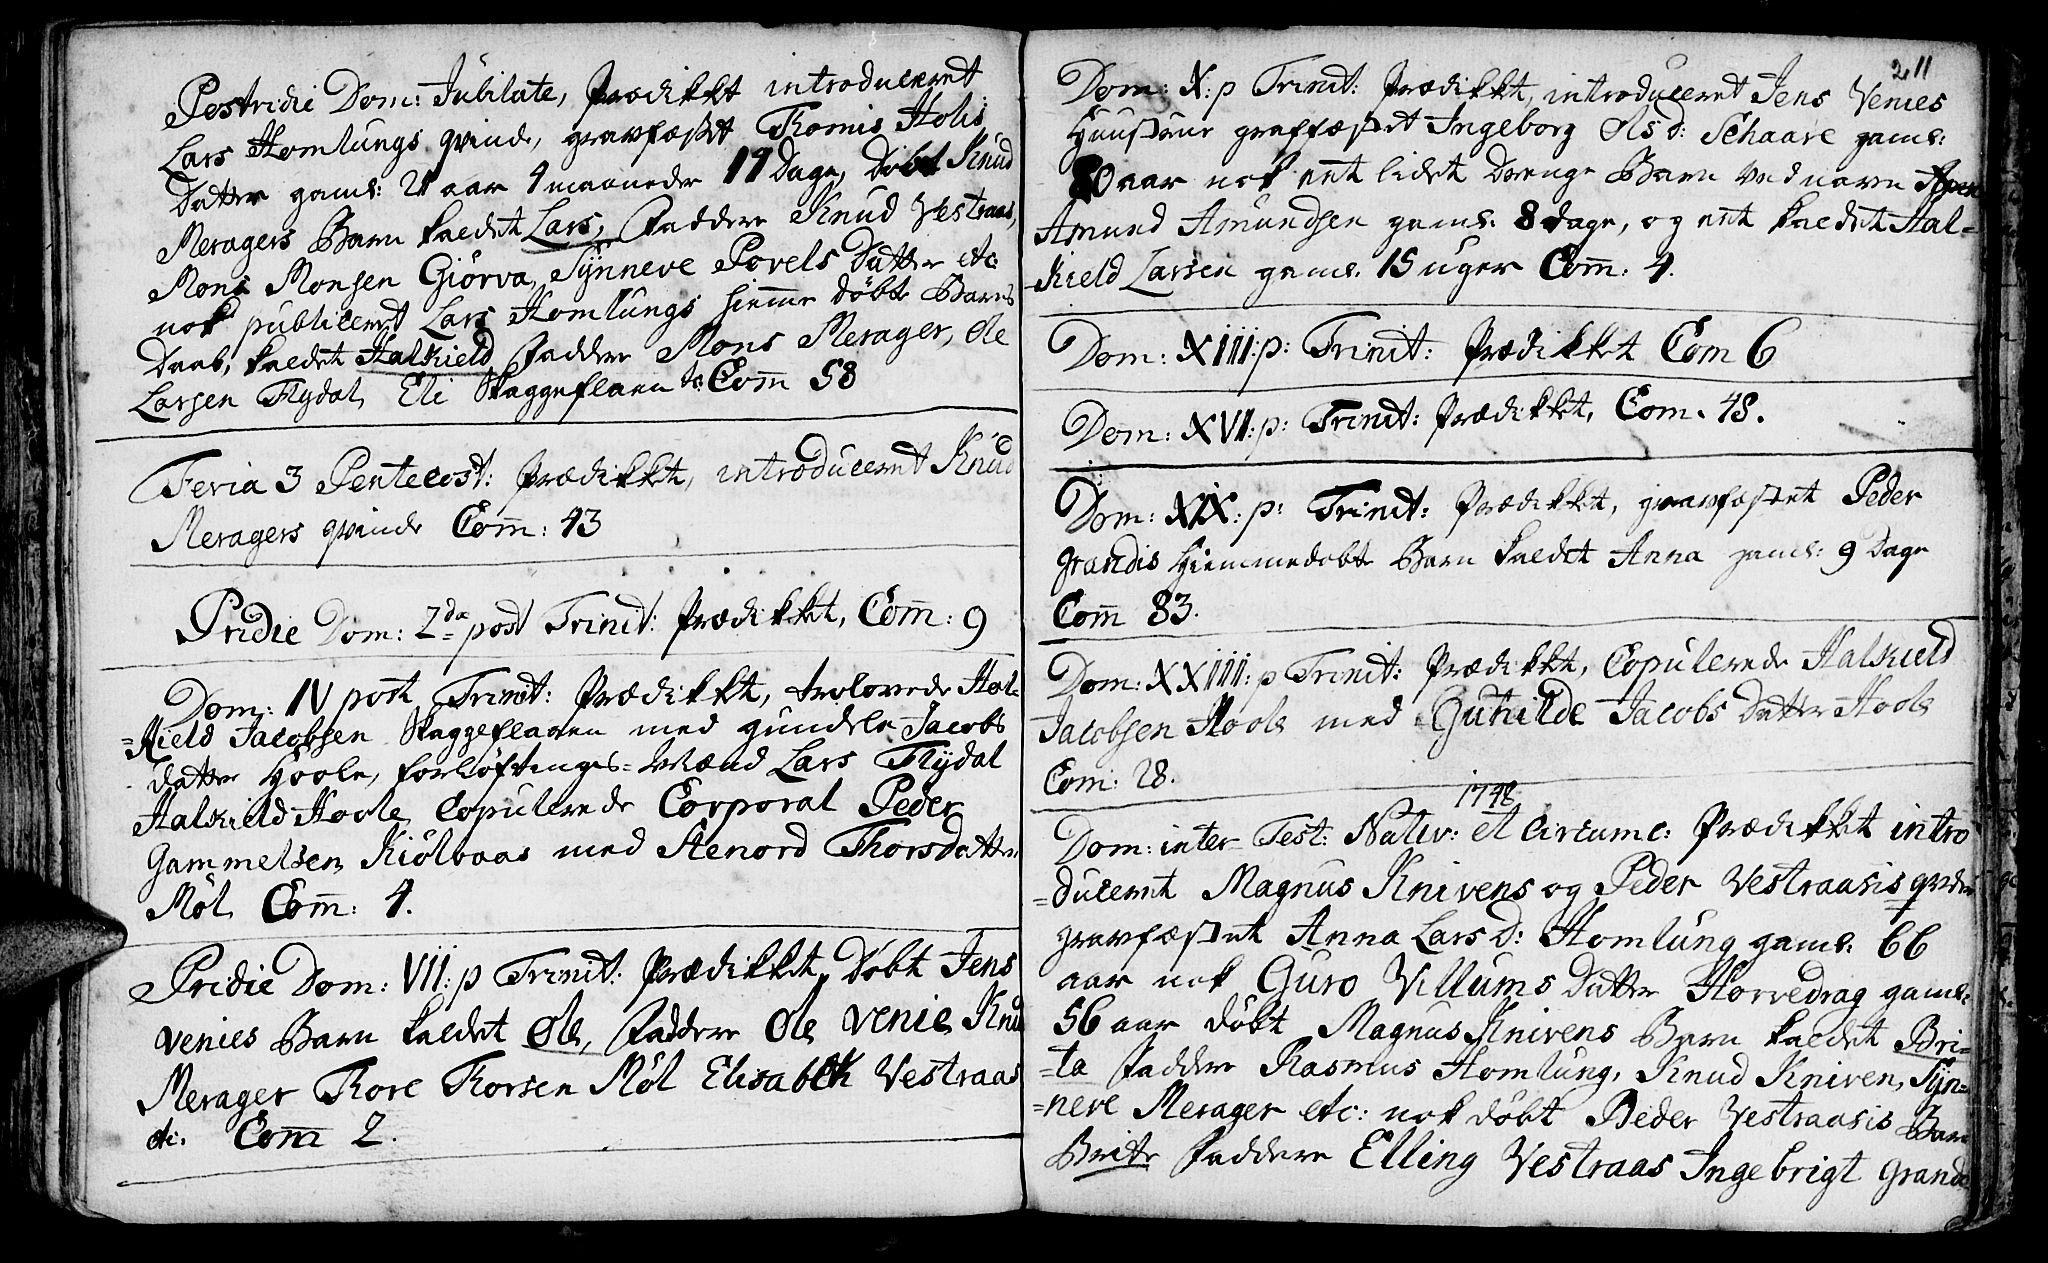 Postridie Dom: Jubilate, Prædikkt introduceret
Lars Homlungs qvinde, gravfæstet Thomis Holis
Datter gaml: 21 aar 4 maaneder 19 Dage, Døbt Knud
Meragers Barn kaldet Lars, Faddere Knud Vestraas,
Mons Monsen Giörva, Synneve Povels Datter etc
nok publiceret Lars Homlungs hieme døbte Barns
Daab, kaldet Halkield Faddere Mons Merager, Ole
Larsen Flydal, Eli Skaggeflaen etc Com̅ 58
Feria 3 Pentecost: Prædikket, introduceret Knud
Meragers qvinde Com̅: 43
Pridie Dom: 2da post Trinit: Prædikket, Com̅: 9
Dom: IV post Trinit: Prædikkt, trolovede Hal-
=kield Jacobsen Skaggeflaen med gundele Jacobs
datter Hoole, forløftings=Mænd Lars Flydal
Halkield Hoole, Copulerede Corporal Peder
Gammelsen Kiölvaas med Stenord Thorsdatter
Möl Com̅: 4.
Pridie Dom: VII: p Trinit: Prædikket, Døbt Jens
Venies Barn kaldet Ole, Faddere Ole Venie, Knud
Merager Thore Thorsen Möl Elisabeth Vestraas
etc. Com̅ 2.
211
Dom: X: p Trinit: Prædikkt, introduceret Jens Venies
Huustrue graffæstet Ingeborg Ols d: Schaare gaml:
80 aar nok ett lidet Drenge Barn ved navn
Amund Amundsen gaml: 8 dage, og ett kaldet Hal=
kield Larsen gaml. 15 uger Com̅: 4.
Dom: XIII: p: Trinit: Prædikket Com 6
Dom: XVI: p: Trinit: Prædikket, Com. 48.
Dom: XIX: p: Trinit: Prædikket, gravfæstet Peder
grandis Hiemmedøbte Barn kaldet Anna gaml: 9 Dage
Com̅ 83.
Dom: XXIII: p Trinit: Prædikkt, Copulerede Halkield
Jacobsen Hoole med Guhilde Jacobs Datter Hoole
Com: 28.
1748
Dom: inter Fest: Nativ: et Circumc: Prædikket intro
=duceret Magnus Knivens og Peder Vestraasis qvinder
gravfæstet Anna Lars D: Homlung gaml: 66
aar nok Guro Villums Datter Horvedrag gaml:
56 aar døbt Magnus Knivens Barn kaldet Bri-
=ta Faddere Rasmus Homlung, Knud Kniven, Syn=
=neve Merager etc: nok døbt Peder Vestraasis Barn
Brite Faddere Elling Vestraas Ingebrigt Grande